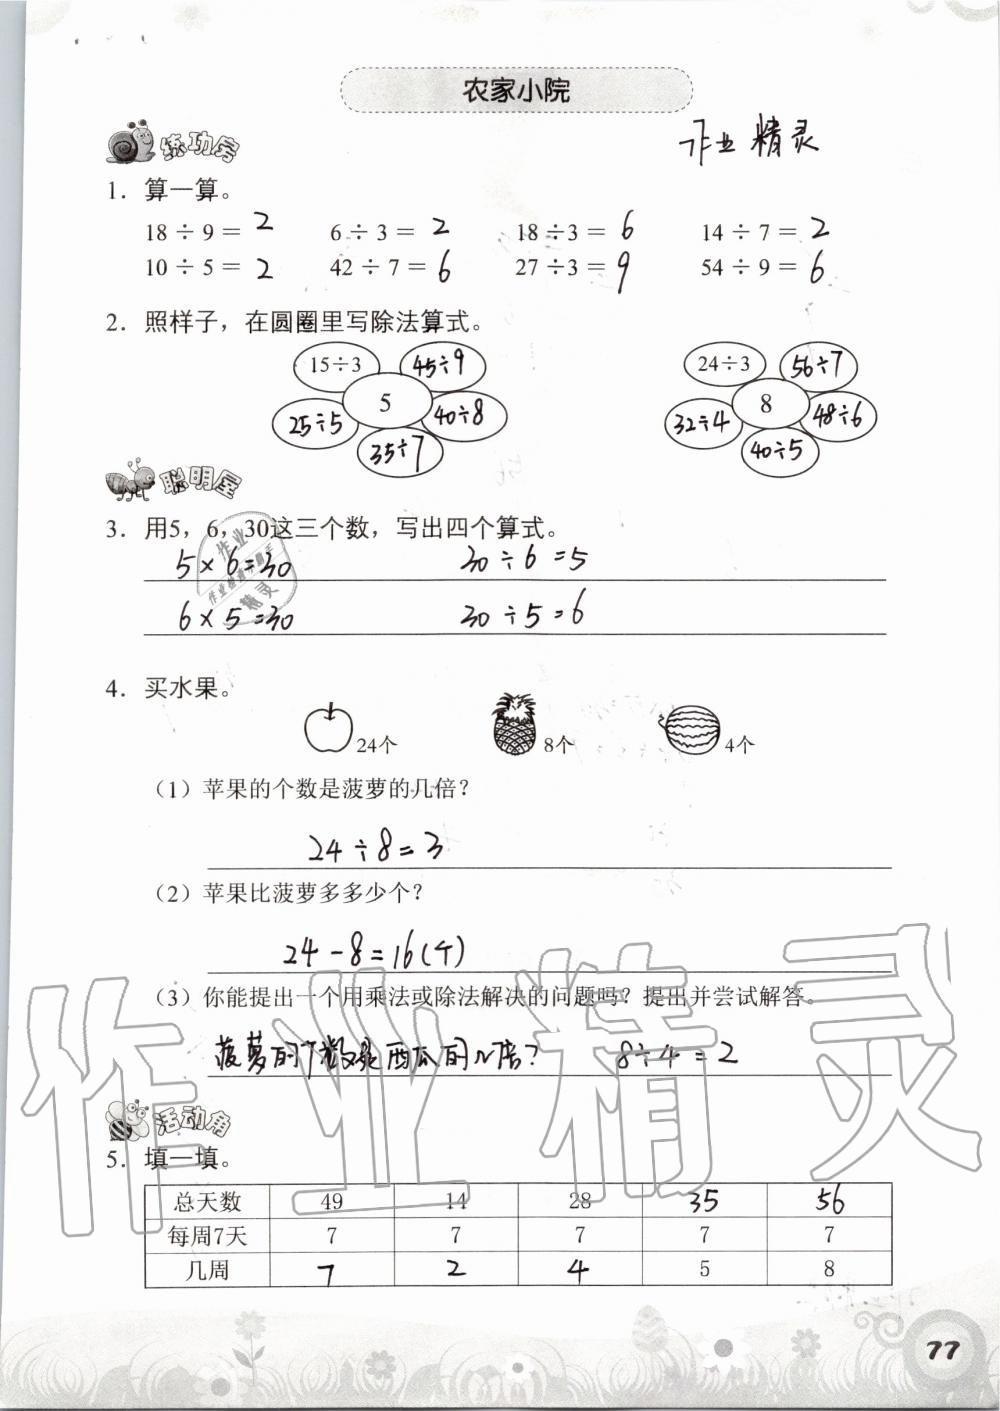 农家小院
作业精灵
练功房
1. 算一算。
18 ÷ 9 = 2 6 ÷ 3 = 2 18 ÷3 = 6 14 ÷ 7 = 2
10 ÷ 5 = 2 42 ÷ 7 = 6 27 ÷3 = 9 54 ÷ 9 = 6
2. 照样子，在圆圈里写除法算式。
15÷3 45÷9 24÷3 56÷7
5 8
25÷5 40÷8 32÷4 48÷6
35÷7 40÷5
聪明屋
3. 用5，6，30这三个数，写出四个算式。
5×6=30 30÷6=5
6×5=30 30÷5=6
作业
作业检查小助手
精灵
4. 买水果。
24个 8个 4个
（1）苹果的个数是菠萝的几倍？
24÷8=3
（2）苹果比菠萝多多少个？
24-8=16(个)
（3）你能提出一个用乘法或除法解决的问题吗？提出并尝试解答。
菠萝的个数是西瓜的几倍? 8÷4=2
作业精灵
活动角
5. 填一填。
总天数 49 14 28 35 56
每周7天 7 7 7 7 7
几周 7 2 4 5 8
77